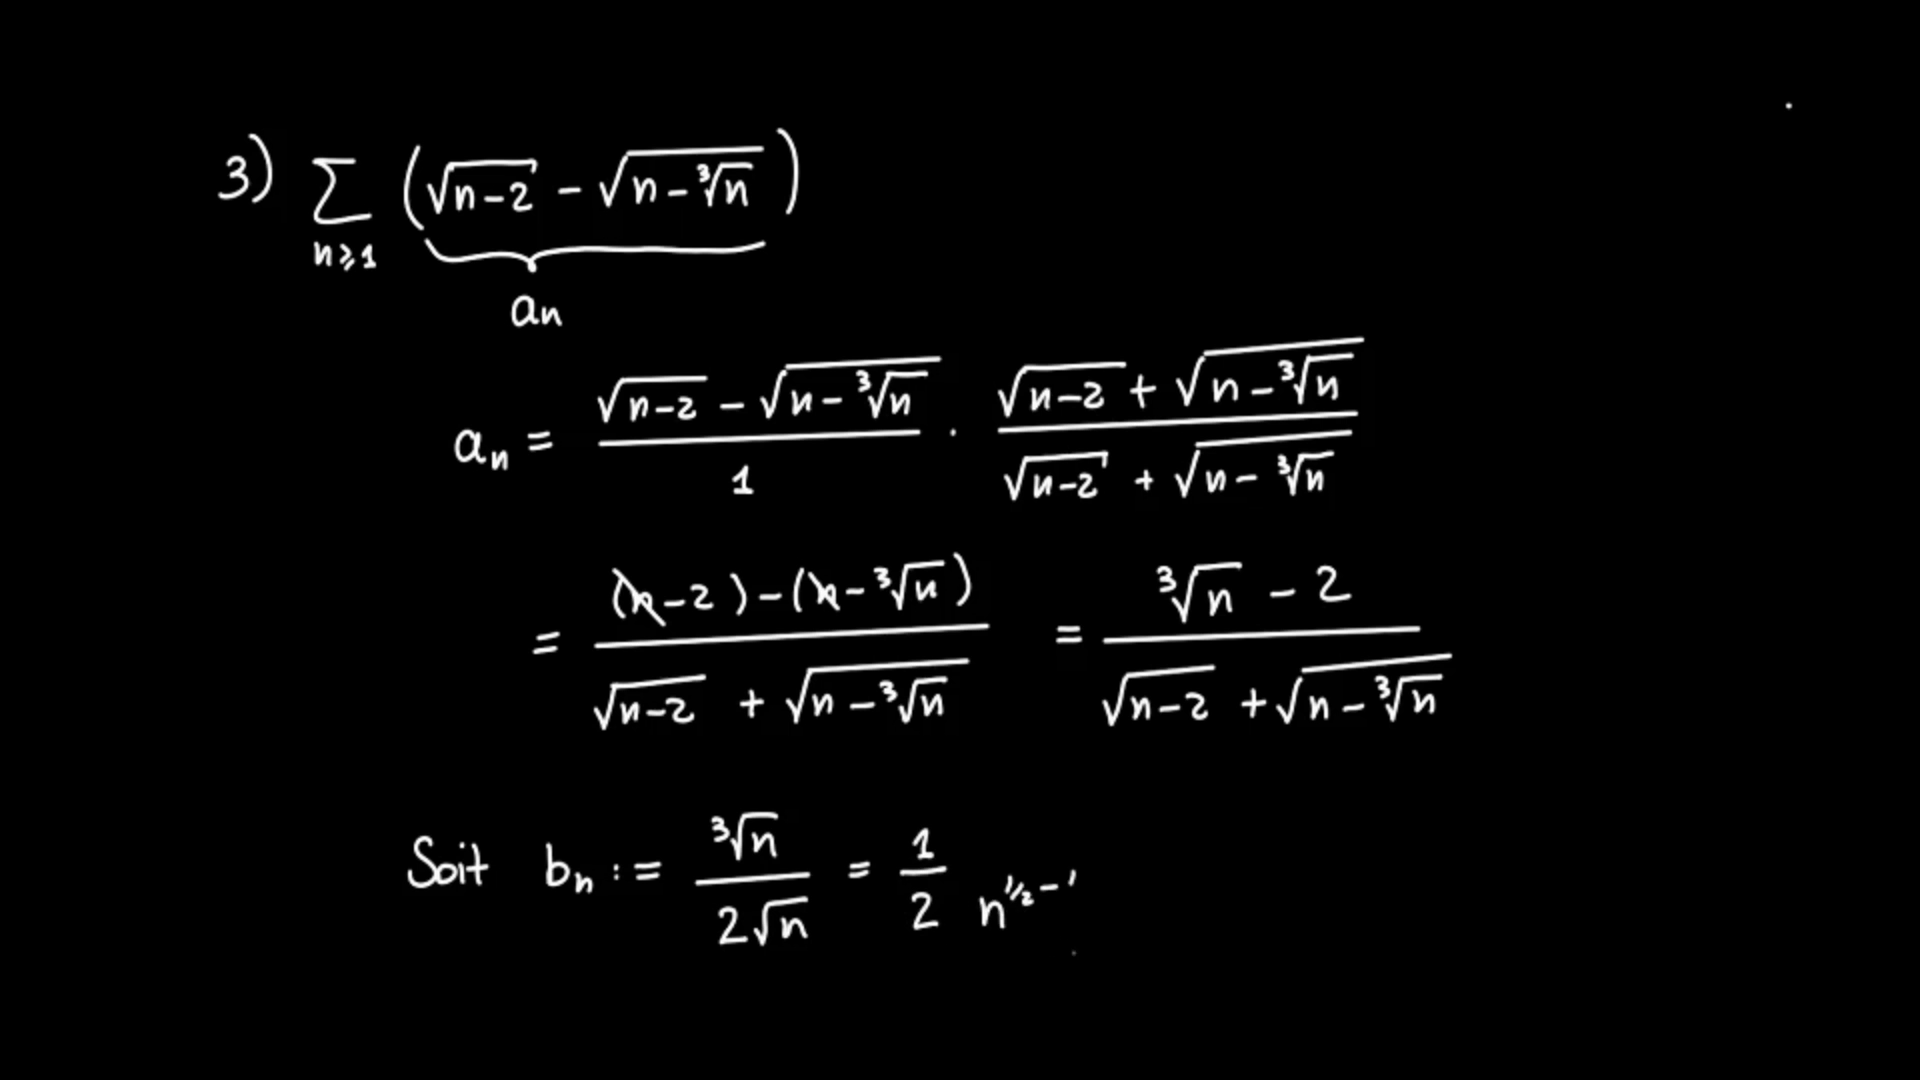 3) ∑ (√(n-2) - √(n-∛n))
n≥1
aₙ
aₙ = (√(n-2) - √(n-∛n))/1 · (√(n-2) + √(n-∛n))/(√(n-2) + √(n-∛n))
= ((n-2)-(n-∛n))/(√(n-2) + √(n-∛n)) = (∛n - 2)/(√(n-2) + √(n-∛n))
Soit bₙ := ∛n/(2√n) = 1/2 n^(1/2 - 1